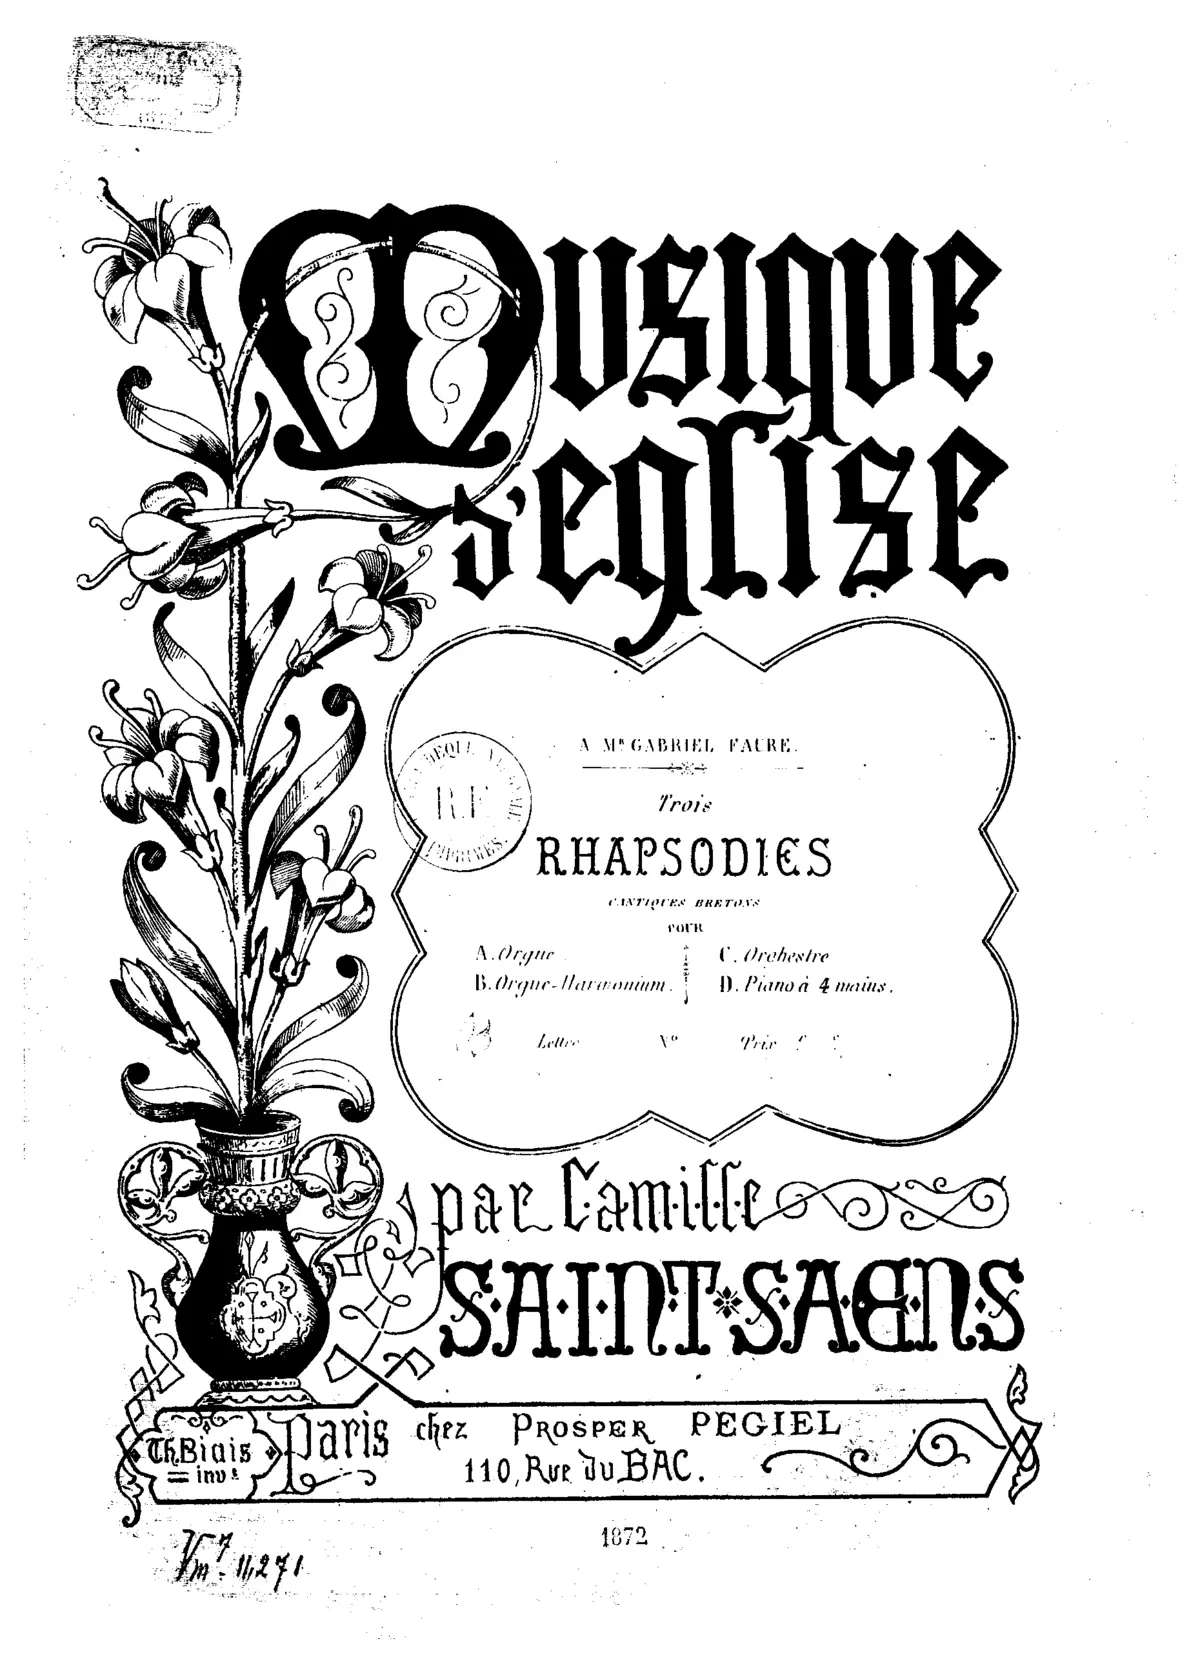 Musique
d'eglise
A Mr GABRIEL FAURE.
Trois
RHAPSODIES
CANTIQUES BRETONS
POUR
A. Orgue
B. Orgue-Harmonium.
C. Orchestre
D. Piano à 4 mains.
Lettre No Prix f c
R.F.
IMPRIMÉS.
par Camille
SAINT SAENS
Th. Biais
inv t
Paris chez PROSPER PEGIEL
110, Rue du BAC.
1872
Vm7. 11,271